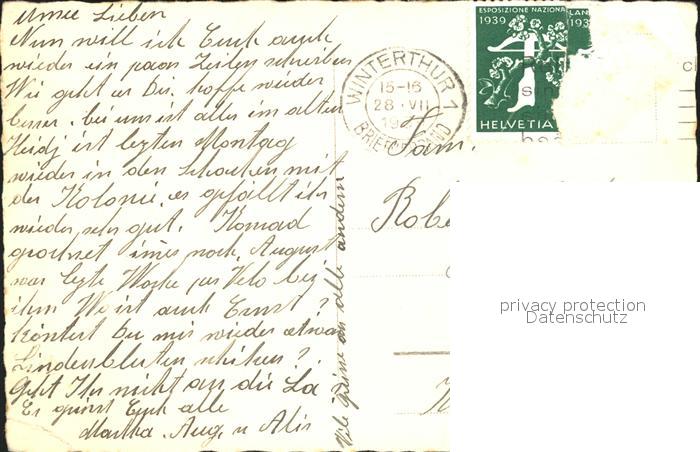 Meine Lieben
Nun will ich Euch auch
wieder ein paar Zeilen schreiben
Wie geht es Dir, hoffe wieder
besser. bei uns ist alles im alten
Heidj ist lezten Montag
wieder in den Schachen mit
der Kolonie, es gefällt ihr
wieder sehr gut. Konrad
noch, August
war lezte Woche per Velo bei
ihm Wo ist auch Ernst?
könntest Du mir wieder etwas
Lindenblüten schiken?
Geht Ihr nicht an die La
Es grüsst Euch alle
Martha, Aug, u Alis
Viele Grüsse an alle andern
ESPOSIZIONE NAZIONA
1939
LAN
193
HELVETIA
WINTERTHUR 1
15-16
28.VII
19
BRIEFVERSAND
Fam.
Robe
privacy protection
Datenschutz